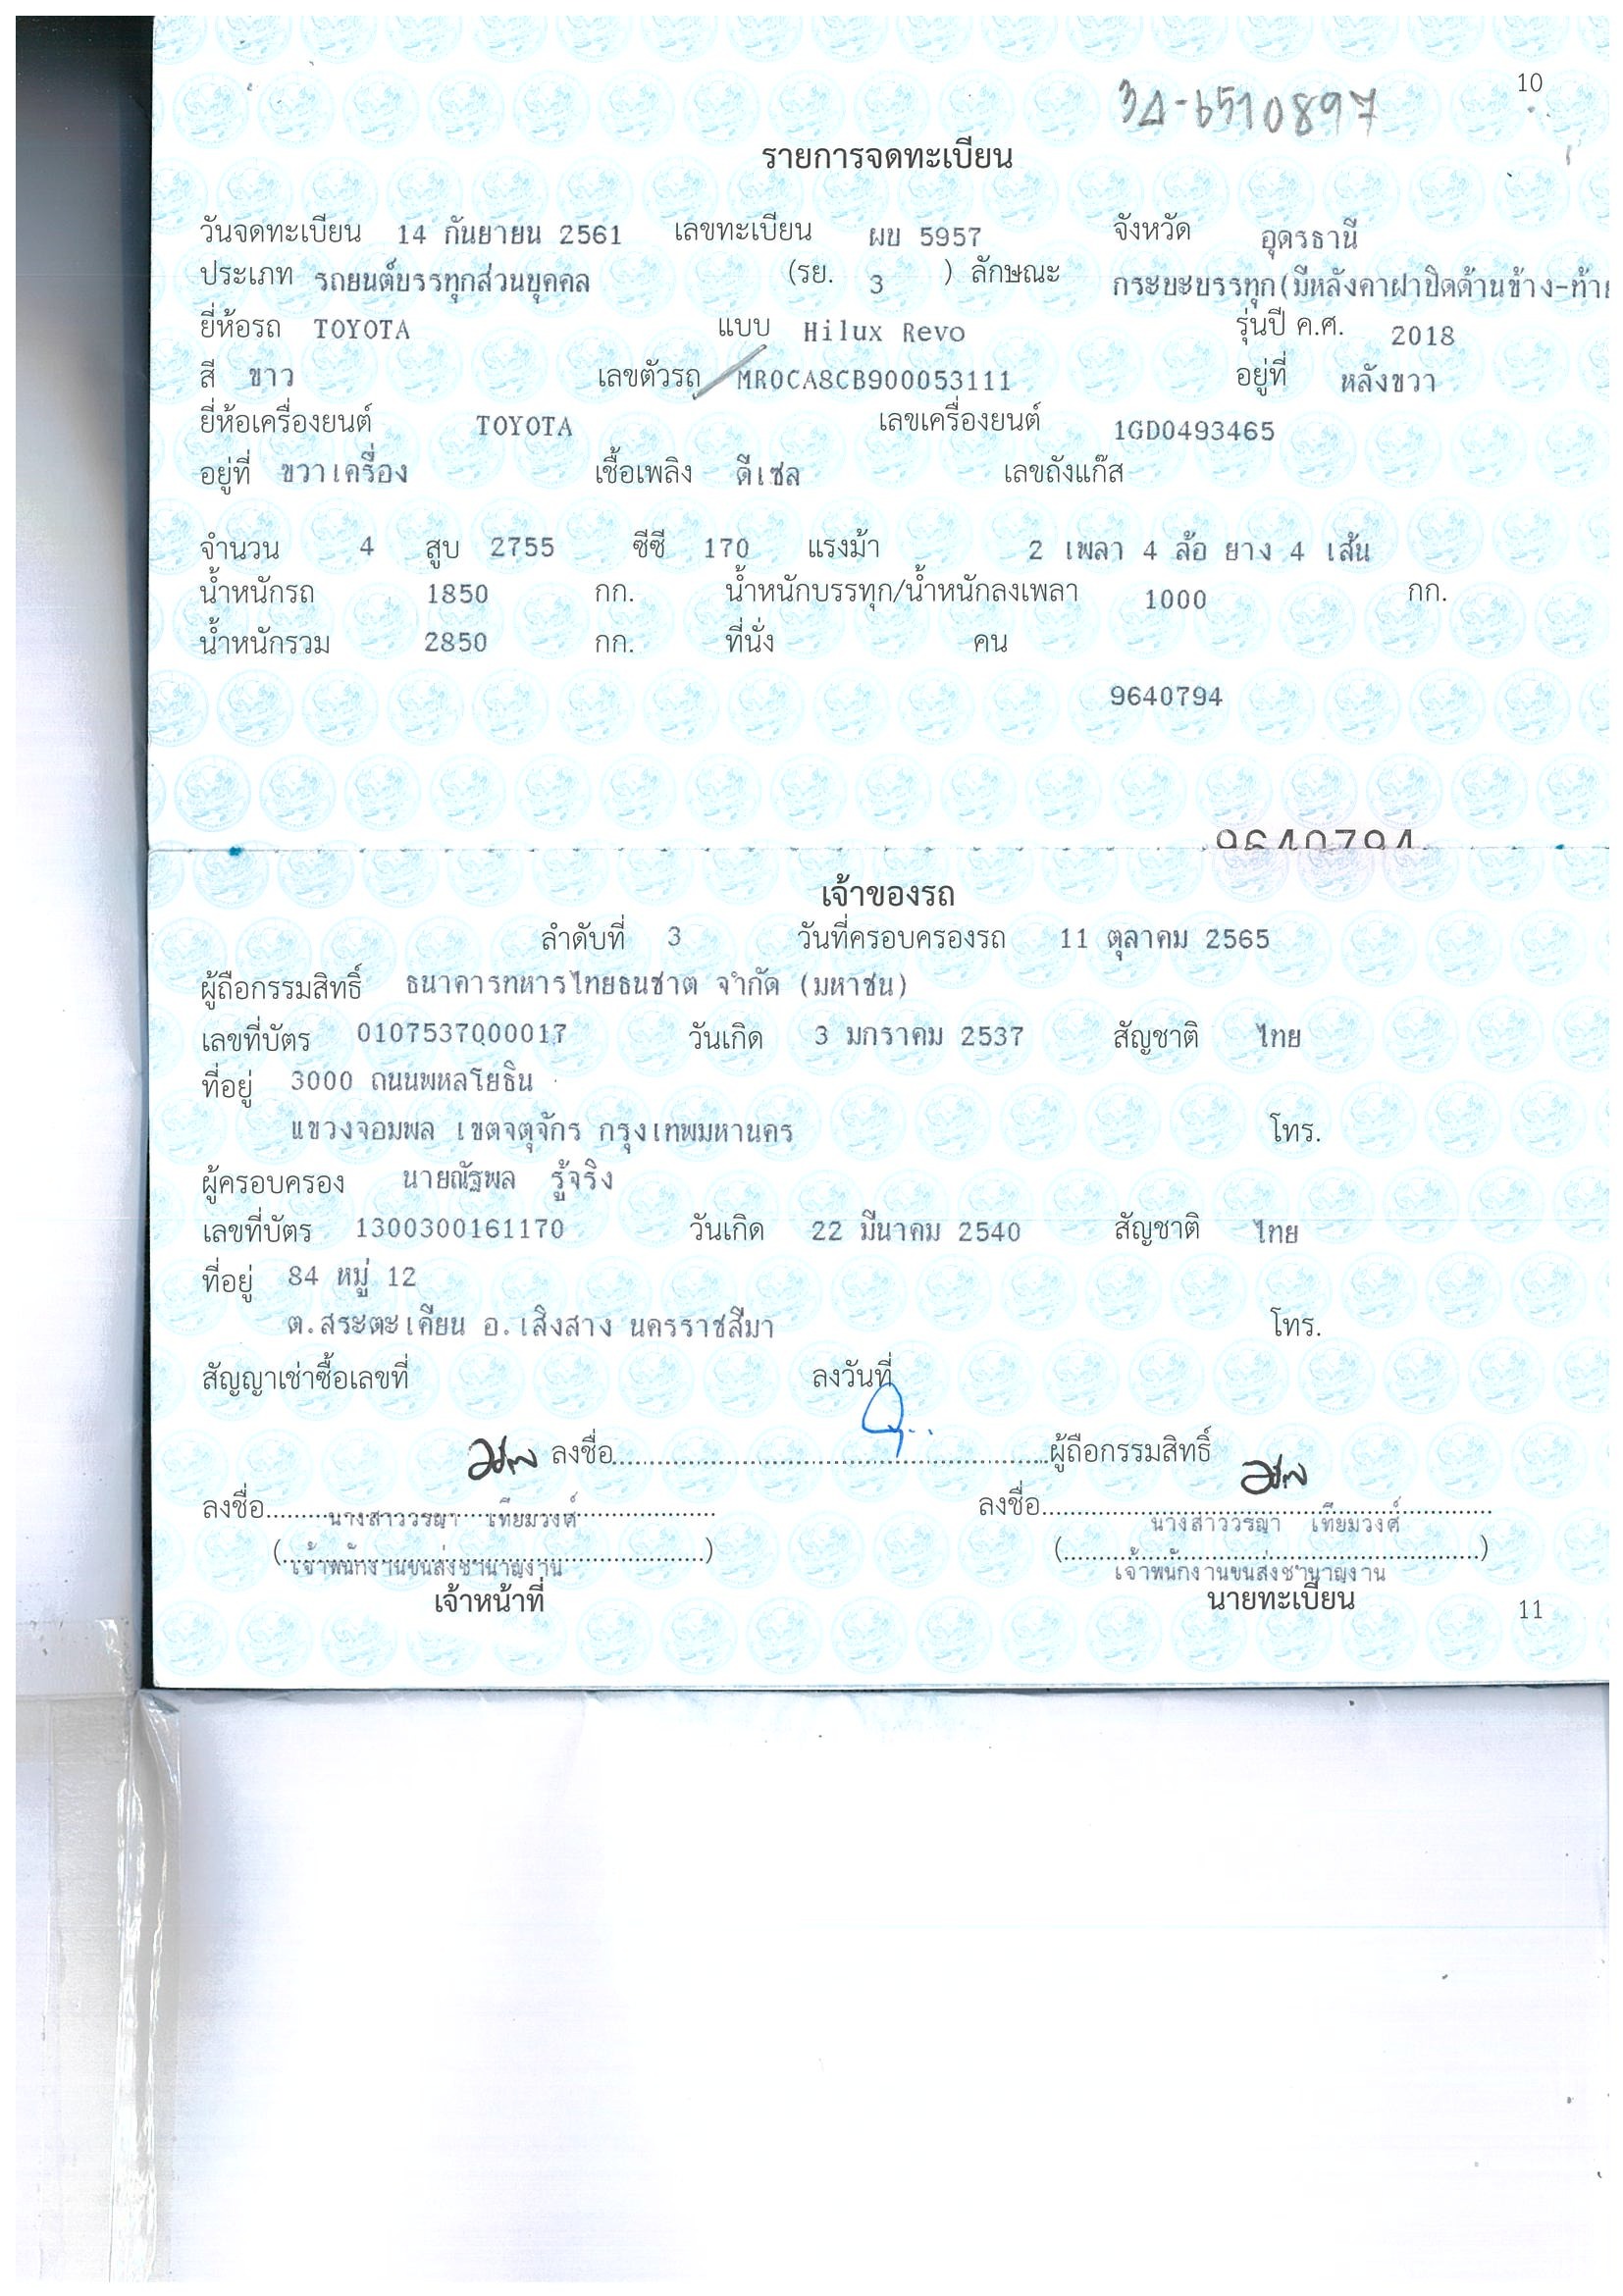 10
3Δ-6510897
รายการจดทะเบียน
วันจดทะเบียน 14 กันยายน 2561 เลขทะเบียน ผข 5957 จังหวัด อุดรธานี
ประเภท รถยนต์บรรทุกส่วนบุคคล (รย. 3 ) ลักษณะ กระบะบรรทุก(มีหลังคาฝาปิดด้านข้าง-ท้าย
ยี่ห้อรถ TOYOTA แบบ Hilux Revo รุ่นปี ค.ศ. 2018
สี ขาว เลขตัวรถ MR0CA8CB900053111 อยู่ที่ หลังขวา
ยี่ห้อเครื่องยนต์ TOYOTA เลขเครื่องยนต์ 1GD0493465
อยู่ที่ ขวาเครื่อง เชื้อเพลิง ดีเซล เลขถังแก๊ส
จำนวน 4 สูบ 2755 ซีซี 170 แรงม้า 2 เพลา 4 ล้อ ยาง 4 เส้น
น้ำหนักรถ 1850 กก. น้ำหนักบรรทุก/น้ำหนักลงเพลา 1000 กก.
น้ำหนักรวม 2850 กก. ที่นั่ง คน
9640794
9640794
เจ้าของรถ
ลำดับที่ 3 วันที่ครอบครองรถ 11 ตุลาคม 2565
ผู้ถือกรรมสิทธิ์ ธนาคารทหารไทยธนชาต จำกัด (มหาชน)
เลขที่บัตร 0107537000017 วันเกิด 3 มกราคม 2537 สัญชาติ ไทย
ที่อยู่ 3000 ถนนพหลโยธิน
แขวงจอมพล เขตจตุจักร กรุงเทพมหานคร โทร.
ผู้ครอบครอง นายณัฐพล รู้จริง
เลขที่บัตร 1300300161170 วันเกิด 22 มีนาคม 2540 สัญชาติ ไทย
ที่อยู่ 84 หมู่ 12
ต.สระตะเคียน อ.เสิงสาง นครราชสีมา โทร.
สัญญาเช่าซื้อเลขที่ ลงวันที่
ลงชื่อ ผู้ถือกรรมสิทธิ์
ลงชื่อ นางสาววรญา เทียมวงศ์ ลงชื่อ นางสาววรญา เทียมวงศ์
(เจ้าพนักงานขนส่งชำนาญงาน) (เจ้าพนักงานขนส่งชำนาญงาน)
เจ้าหน้าที่ นายทะเบียน
11